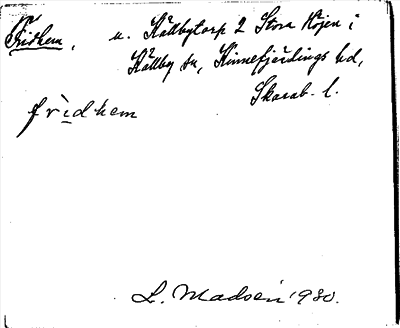 Fridhem, u. Källbytorp 2 Stora Höjen i
Källby sn, Kinnefjärdings hd,
Skarab. l.
frìdhem
L. Madsén 1930.